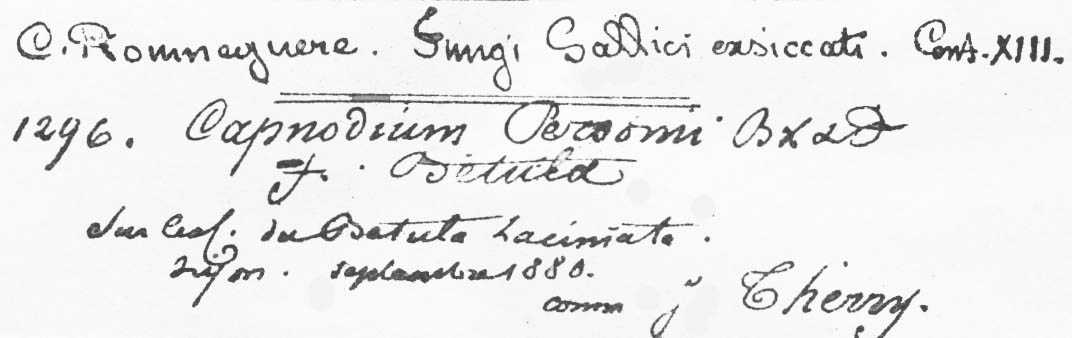 C. Roumeguere. Fungi Gallici exsiccati. Cent. XIII.
1296. Capnodium Personii B & D
f. Betulæ
Sur les f. du Betula laciniata.
Lyon. septembre 1880.
comm J Therry.